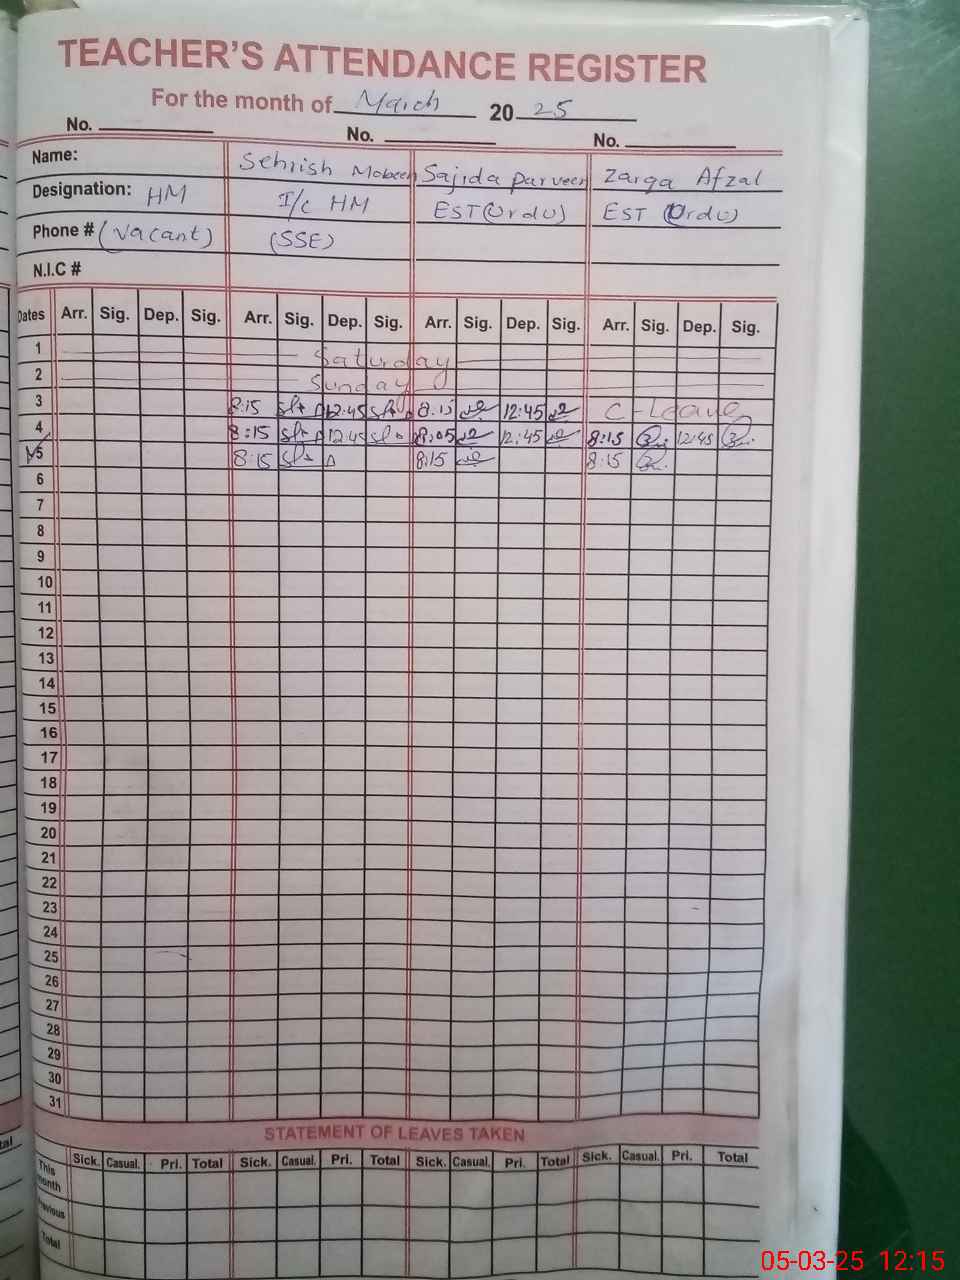 TEACHER'S ATTENDANCE REGISTER
For the month of March 2025
No. No. No.
Name: Sehrish Mobeen Sajida Parveen Zarqa Afzal
Designation: HM I/C HM EST (Urdu) EST (Urdu)
Phone # (Vacant) (SSE)
N.I.C #
Dates Arr. Sig. Dep. Sig. Arr. Sig. Dep. Sig. Arr. Sig. Dep. Sig. Arr. Sig. Dep. Sig.
1 Saturday
2 Sunday
3 8:15 12:45 8:15 12:45 C-Leave
4 8:15 12:45 8:05 12:45 8:15 12:45
5 8:15 8:15 8:15
6
7
8
9
10
11
12
13
14
15
16
17
18
19
20
21
22
23
24
25
26
27
28
29
30
31
STATEMENT OF LEAVES TAKEN
Sick. Casual. Pri. Total Sick. Casual. Pri. Total Sick. Casual. Pri. Total Sick. Casual. Pri. Total
This
onth
evious
Total
tal
05-03-25 12:15